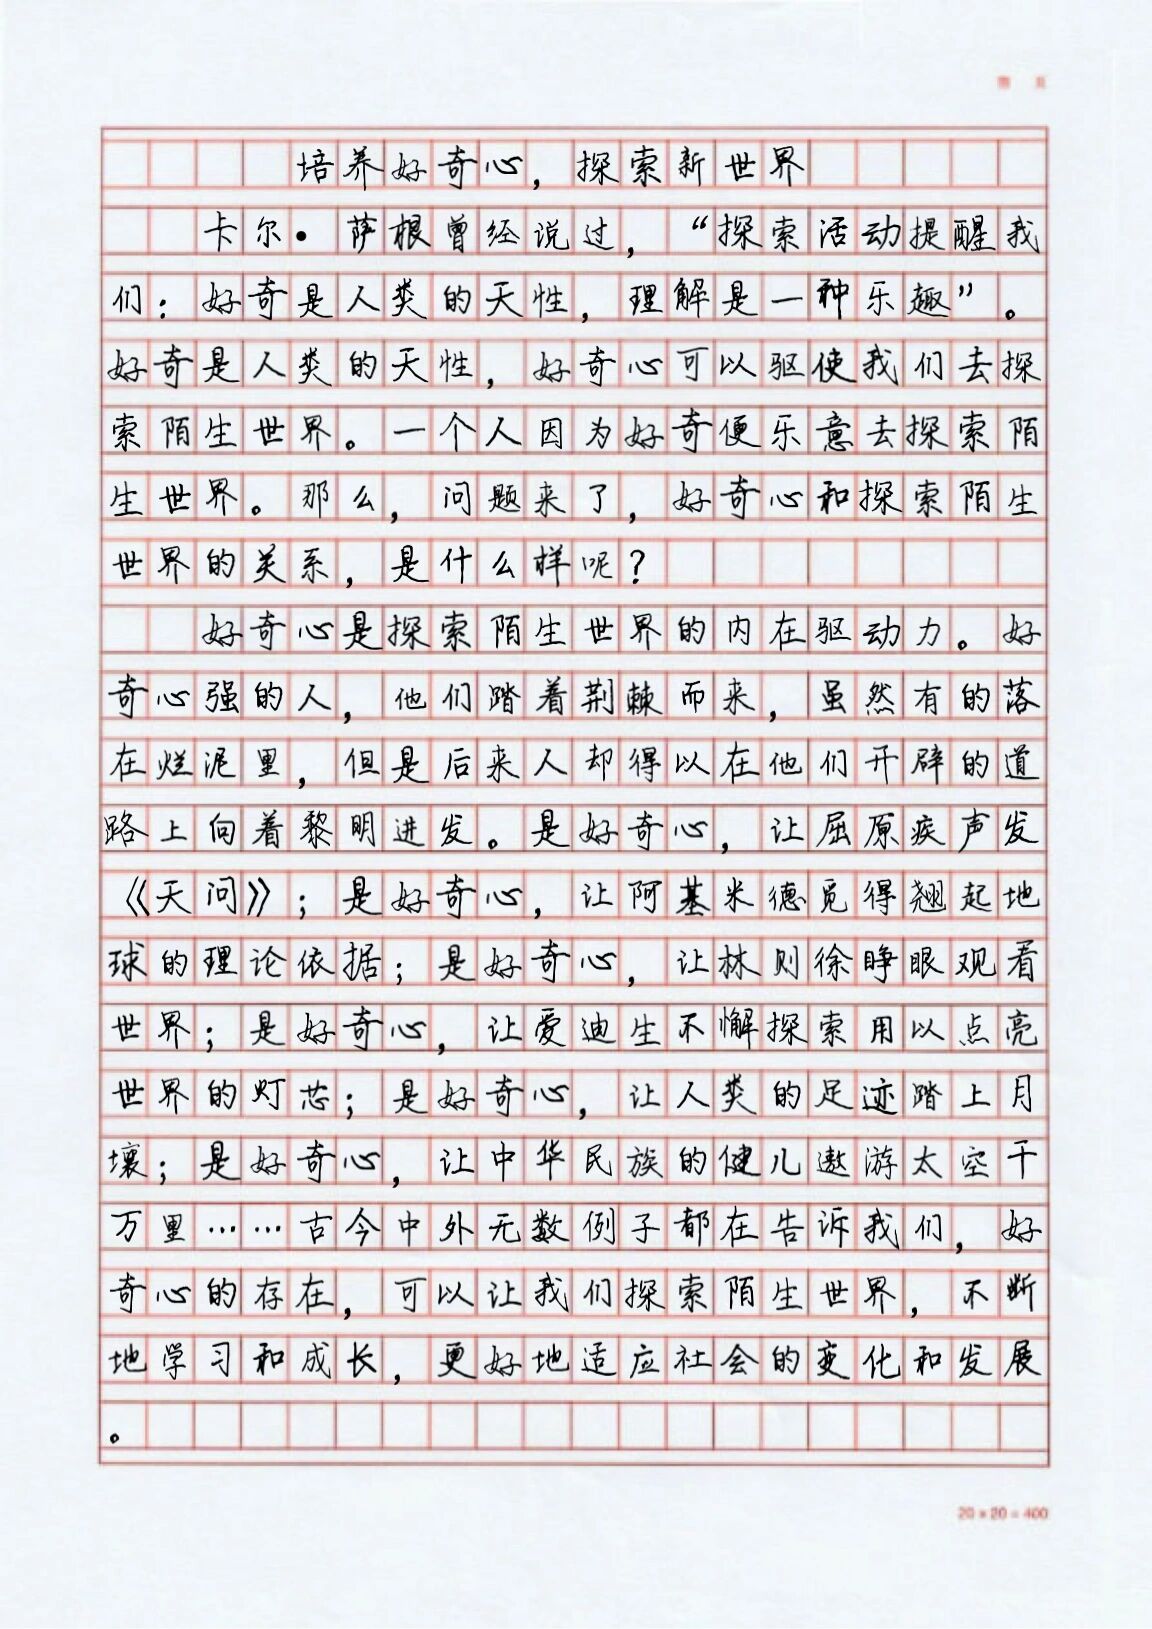 培养好奇心，探索新世界
卡尔·萨根曾经说过，“探索活动提醒我
们：好奇是人类的天性，理解是一种乐趣”。
好奇是人类的天性，好奇心可以驱使我们去探
索陌生世界。一个人因为好奇便乐意去探索陌
生世界。那么，问题来了，好奇心和探索陌生
世界的关系，是什么样呢？
好奇心是探索陌生世界的内在驱动力。好
奇心强的人，他们踏着荆棘而来，虽然有的落
在烂泥里，但是后来人却得以在他们开辟的道
路上向着黎明进发。是好奇心，让屈原疾声发
《天问》；是好奇心，让阿基米德觅得翘起地
球的理论依据；是好奇心，让林则徐睁眼观看
世界；是好奇心，让爱迪生不懈探索用以点亮
世界的灯芯；是好奇心，让人类的足迹踏上月
壤；是好奇心，让中华民族的健儿遨游太空千
万里……古今中外无数例子都在告诉我们，好
奇心的存在，可以让我们探索陌生世界，不断
地学习和成长，更好地适应社会的变化和发展
。
20×20=400